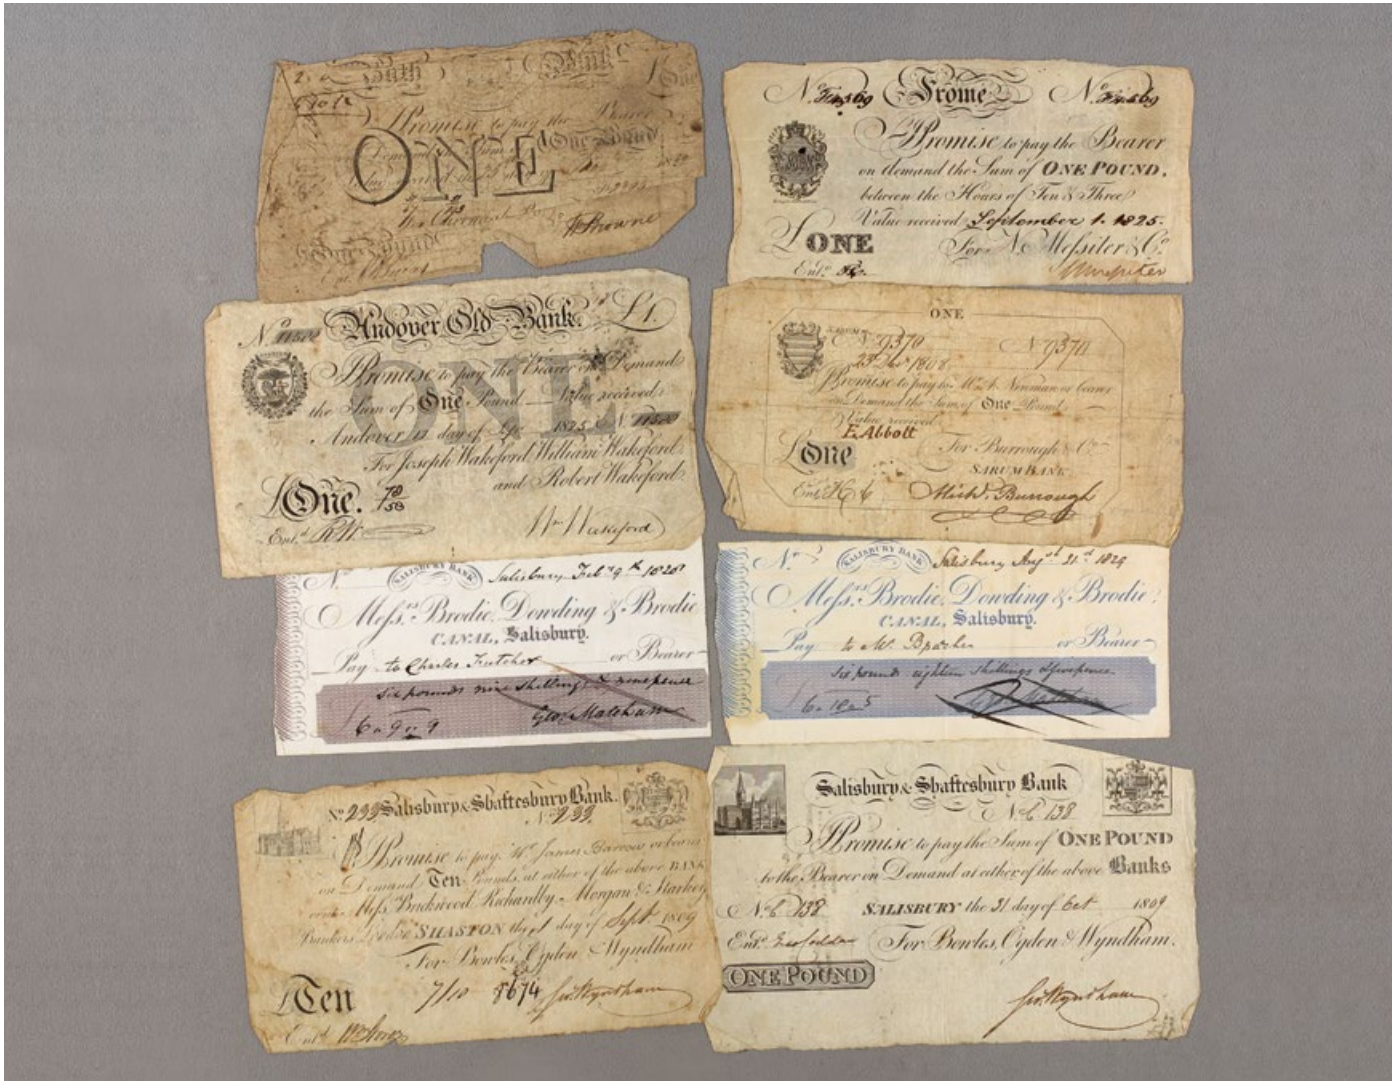 Bath Bank
I Promise to pay the Bearer
ONE
One Pound
W Browne
No. 569 Frome No. 569
I Promise to pay the Bearer
on demand the Sum of ONE POUND,
between the Hours of Ten & Three
Value received September 1. 1825.
£ONE For N. Messiter & Co.
Entd.
No. 11500 Andover Old Bank. £1.
ONE
I Promise to pay the Bearer on Demand
the Sum of One Pound Value received
Andover 12 day of 1825 No. 11500
For Joseph Wakeford William Wakeford
and Robert Wakeford
£One.
Entd. RW Wm Wakeford
ONE
SARUM
No. 9370 No. 9370
1808
I Promise to pay to Newman or bearer
on Demand the Sum of One Pound
Value received
E. Abbott
£One For Burrough & Co.
SARUM BANK
Entd. Michl. Burrough
No. SALISBURY BANK Salisbury Feby 9th 1828
Messrs. Brodie, Dowding & Brodie
CANAL, Salisbury.
Pay to Charles or Bearer
six pounds nine shillings & ninepence
£6 " 9 " 9 Geo. Matcham
No. SALISBURY BANK Salisbury Augst 31st 1829
Messrs. Brodie, Dowding & Brodie
CANAL, Salisbury.
Pay to Mr or Bearer
six pounds eighteen shillings
£
No. 299 Salisbury & Shaftesbury Bank.
No. 299.
I Promise to pay Mr James Barrow or bearer
on Demand Ten Pounds, at either of the above BANKS
or at Messrs Brickwood, Morgan & Starkey
Bankers London SHASTON the 1st day of Septr 1809
For Bowles, Ogden & Wyndham
£Ten 7/10 8674 Geo. Wyndham
Entd.
Salisbury & Shaftesbury Bank
No. C 138
I Promise to pay the Sum of ONE POUND
to the Bearer on Demand at either of the above Banks
No. C 138 SALISBURY the 31 day of Oct 1809
Entd. For Bowles, Ogden & Wyndham.
ONE POUND Geo. Wyndham